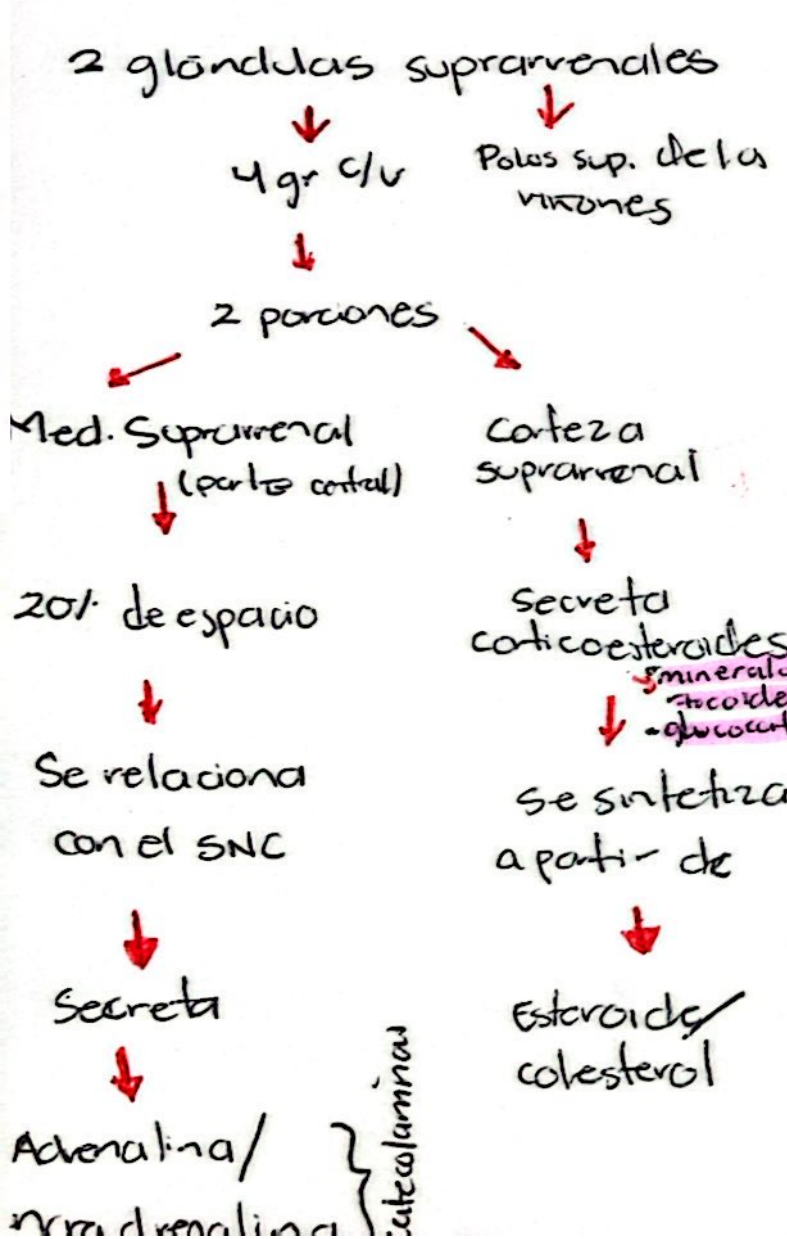 2 glándulas suprarrenales
4 gr c/u
Polos sup. de la
riñones
2 porciones
Med. Suprarrenal
(parte central)
20% de espacio
Se relaciona
con el SNC
Secreta
Adrenalina/
noradrenalina
catecolaminas
Corteza
suprarrenal
secreta
corticoesteroides
minerалo
-coide
- glucocort
se sintetiza
a partir de
Esteroide/
colesterol